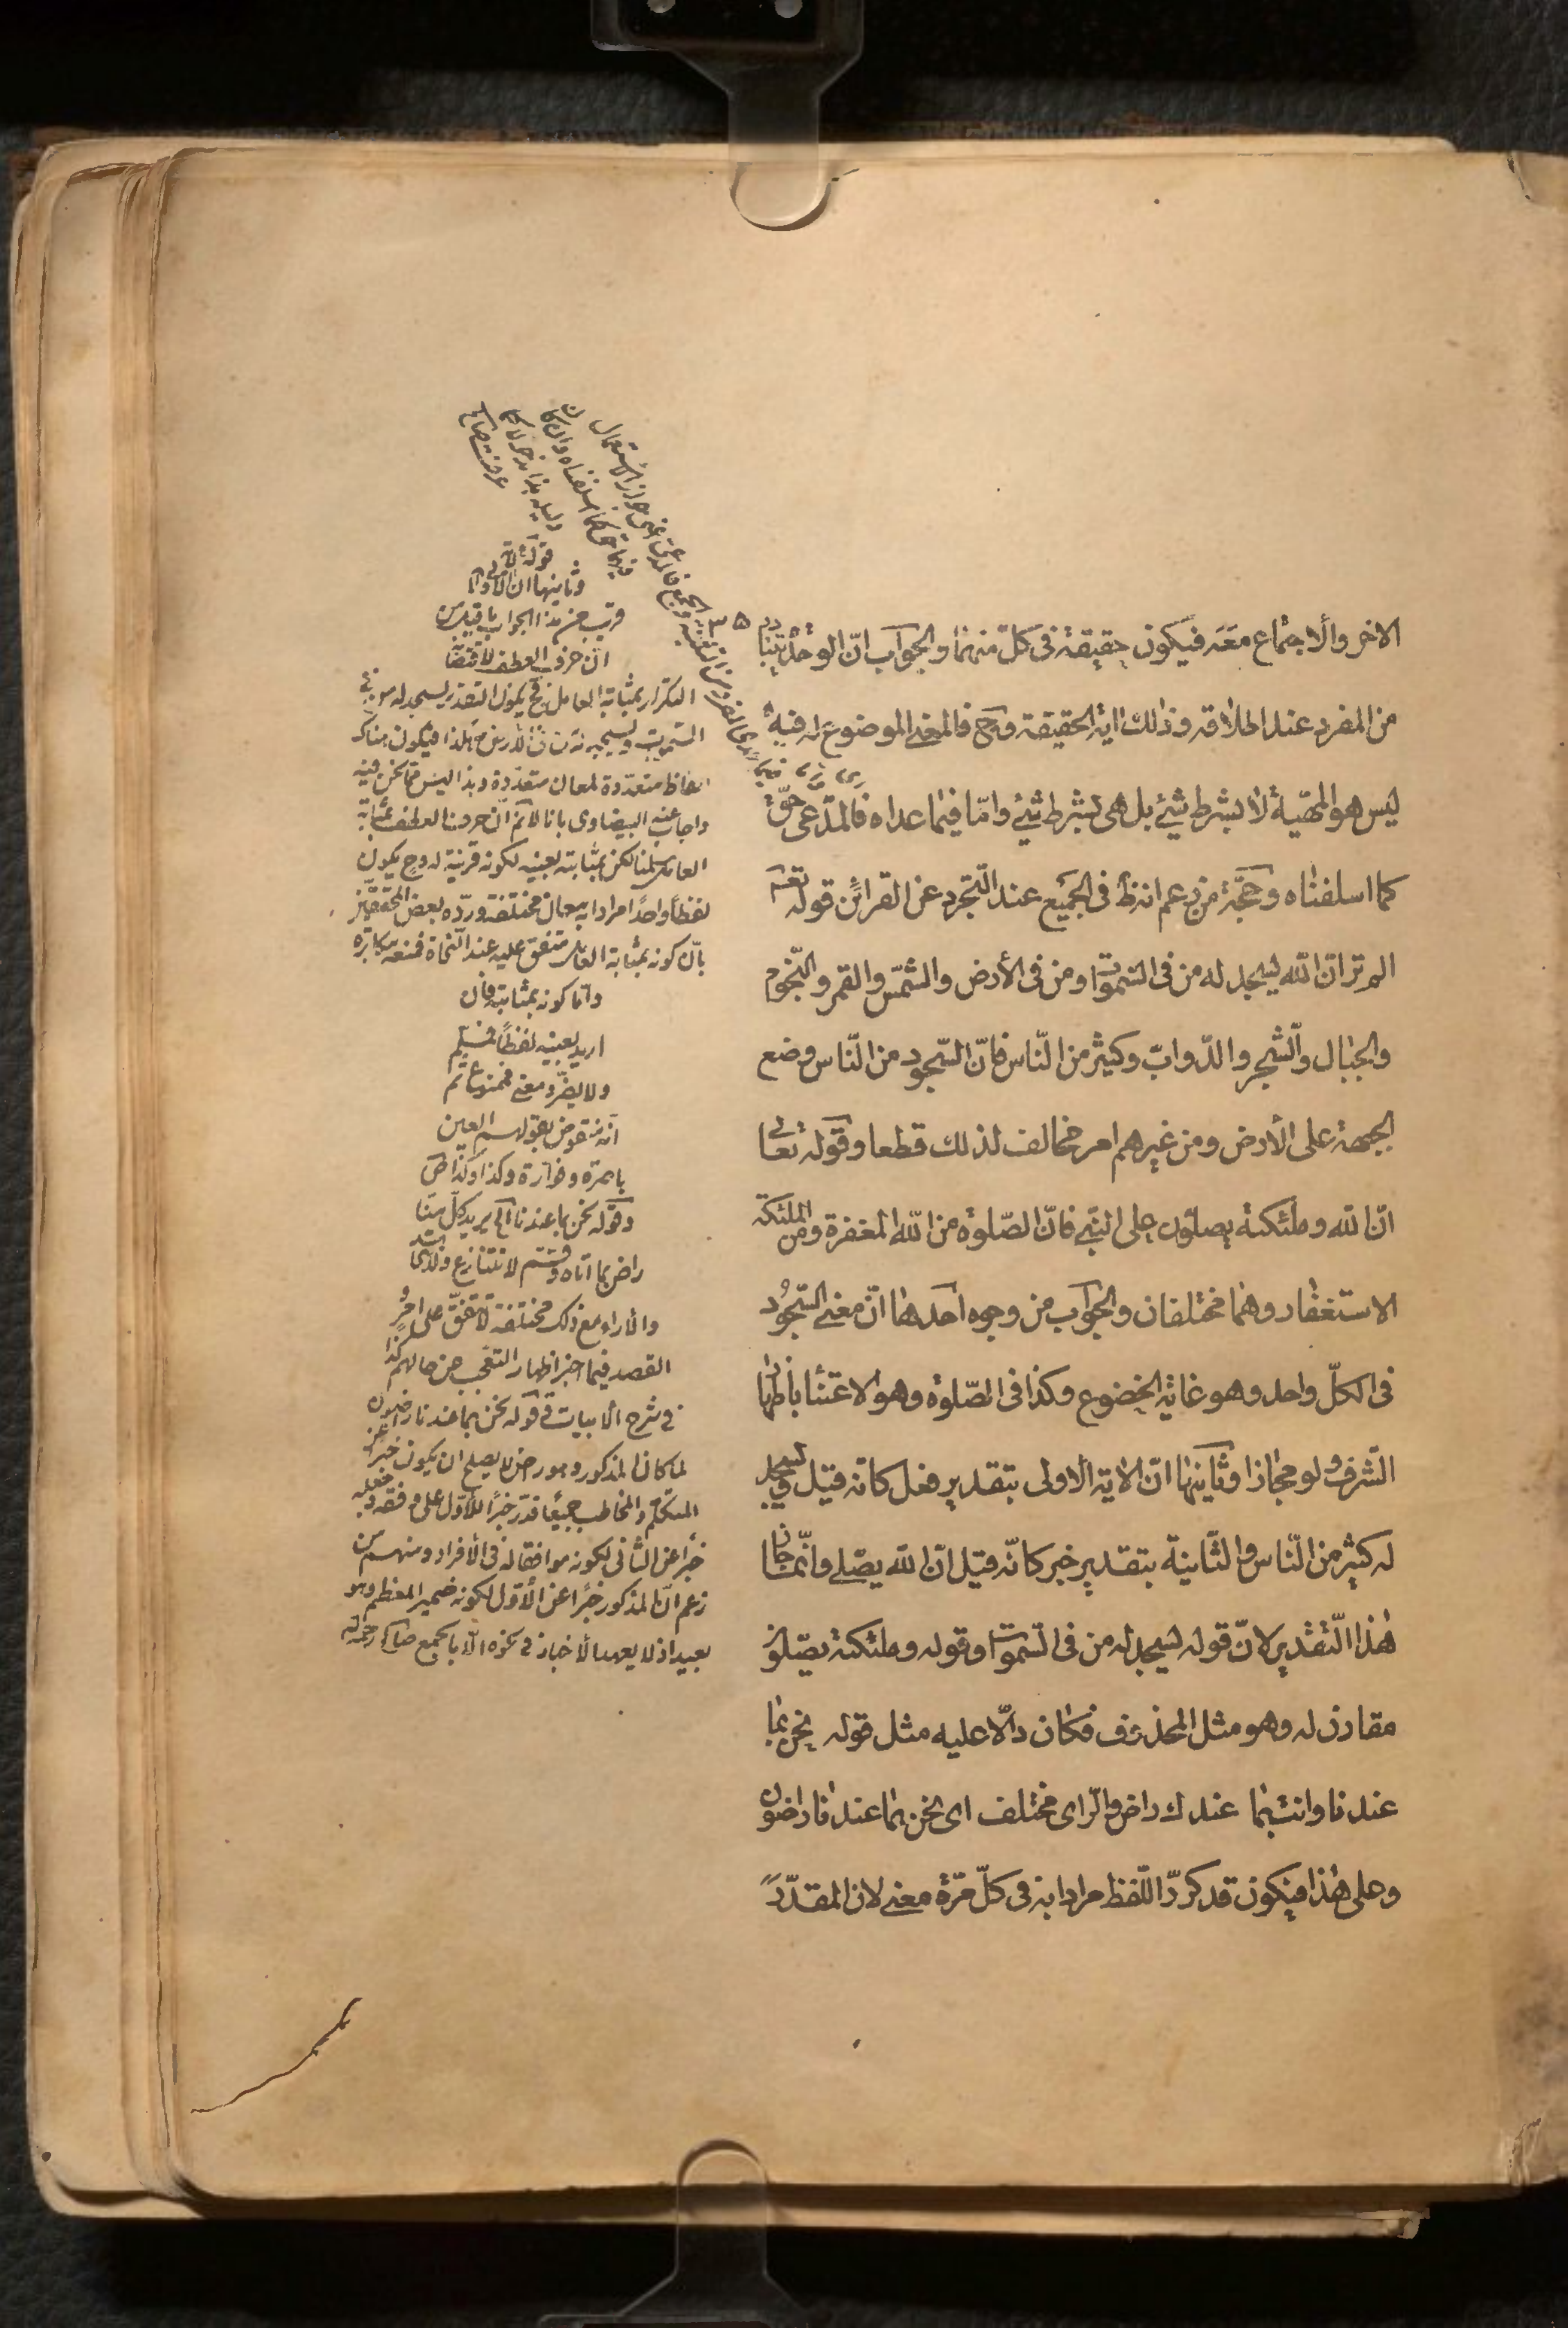 الاخر والاجتماع معه فيكون حقيقة في كلّ منهما والجواب انّ الوحدة تتبادر
من المفرد عند اطلاقه وذلك اية الحقيقة وح فالمعنى الموضوع له فيه
ليس هو المهيّة لا بشرط شيئ بل هي بشرط شيئ وامّا فيما عداه فالمدّعى حقّ
كما اسلفناه وحجّة من زعم انه ظ في الجميع عند التّجرد عن القرائن قوله تع
الم تر انّ الله يسجد له من في السّموات ومن في الأرض والشّمس والقمر والنّجوم
والجبال والشّجر والدّوابّ وكثير من النّاس فانّ السّجود من النّاس وضع
الجبهة على الأرض ومن غيرهم امر مخالف لذلك قطعا وقوله تعالى
انّ الله وملئكته يصلّون على النّبي فانّ الصّلوة من الله المغفرة ومن الملئكة
الاستغفار وهما مختلفان والجواب من وجوه احدها انّ معنى السّجود
في الكلّ واحد وهو غاية الخضوع وكذا في الصّلوة وهو الاعتناء باظهار
الشّرف ولو مجازا وثانيها انّ الاية الاولى بتقدير فعل كانّه قيل ويسجد
له كثير من النّاس والثّانية بتقدير خبر كانّه قيل انّ الله يصلّي وانّما جاز
هذا التّقدير لانّ قوله يسجد له من في السّموات وقوله وملئكته يصلّون
مقارن له وهو مثل المحذوف فكان دالّا عليه مثل قوله نحن بما
عندنا وانت بما عندك راض والرّاى مختلف اى نحن بما عندنا راضون
وعلى هذا فيكون قد كرّر اللّفظ مرادا به في كلّ مرّة معنى لان المقدّر
قوله
وثانيها ان الاية الاولى
قريب من هذا الجواب ما قيل من
انّ حرف العطف لاقتضاء
التكرار بمثابة العامل فح يكون التقدير يسجد له من في
السموات ويسجد له من في الأرض وهكذا فيكون هناك
الفاظ متعدّدة لمعان متعدّدة وهذا ليس ممّا نحن فيه
واجاب عنه البيضاوى بانا لا نم انّ حرف العطف بمثابة
العامل سلمنا لكن بمثابته بعينه لكونه قرينة له وح يكون
لفظا واحدا مرادا به معان مختلفة وردّه بعض المحققين
بانّ كونه بمثابة العامل متفق عليه عند النّحاة فمنعه مكابرة
وامّا كونه بمثابته فان
اريد بعينه لفظا فمسلّم
ولا يضرّ و معنى فممنوع ثم
انّه منقوض بقولهم العين
باصرة وفوّارة وكذا وكذا
وقوله نحن بما عندنا يريد كلّ منّا
راض بما اتاه وقسم لا نتنازع
والاراء مع ذلك مختلفة لا تتفق على امر
القصد فيما اخبر اظهار التعجب من حالهم كذا
في شرح الابيات في قوله نحن بما عندنا راضون
لما كان المذكور وهو راض لا يصلح ان يكون خبرا عن
المتكلّم والمخاطب جميعا قدّر خبرا للاوّل على وفقه وجعله
خبرا عن الثّاني لكونه موافقا له في الأفراد ومنهم من
زعم انّ المذكور خبرا عن الأوّل لكونه ضمير المعظم وهو
بعيد اذ لا يعهد الأخبار في نحوه الّا بالجمع صالح رحمه الله